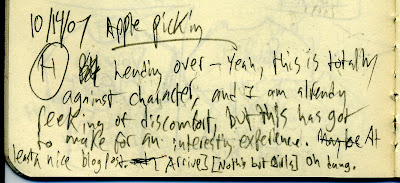 10/14/07 Apple pickin
(H) Heading over – Yeah, this is totally
against character, and I am already
feeling of discomfort, but this has got
to make for an interesting experience. At
least a nice blog post. [Arrive] [Nothing but Girls] Oh dang.